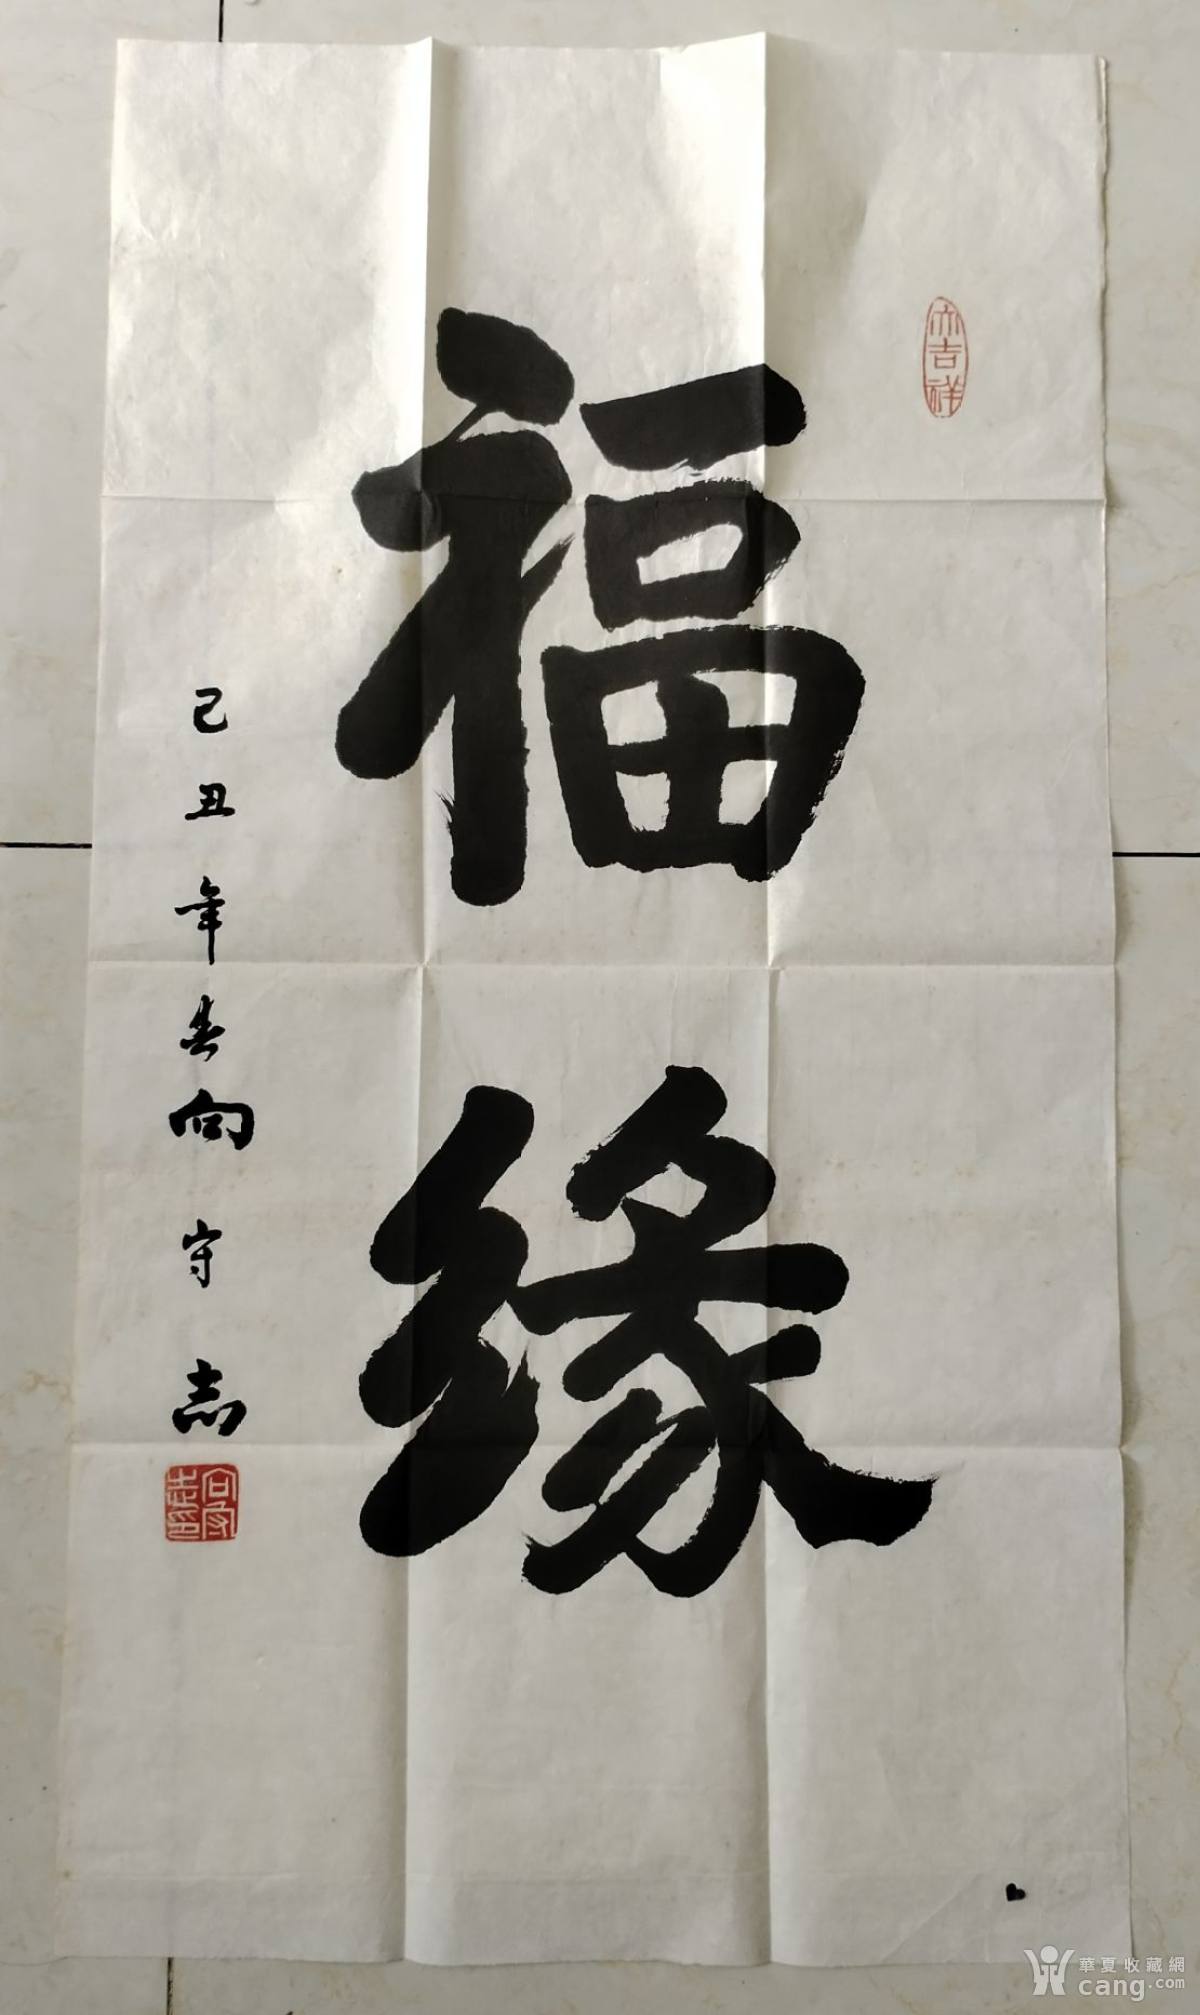 大吉祥
福缘
己丑年春向守志
向守志印
華夏收藏網
cang.com